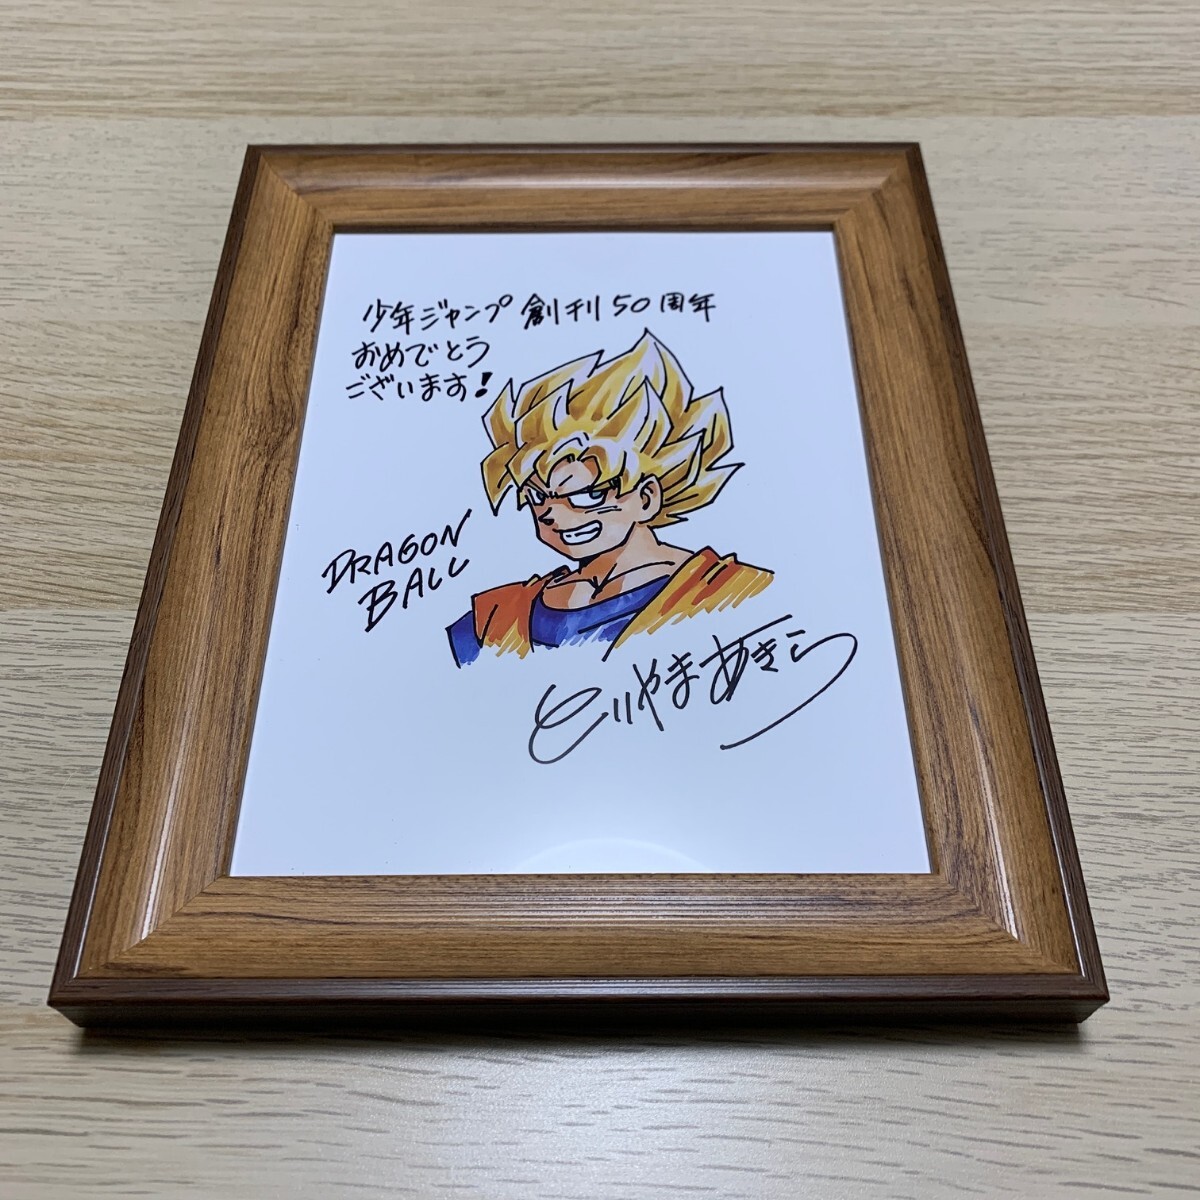 少年ジャンプ 創刊50周年
おめでとう
ございます!
DRAGON
BALL
とりやまあきら